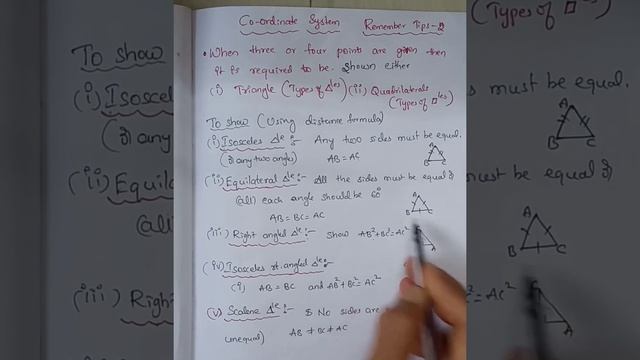 Co-ordinate System Remember Tips-2
• When three or four points are given then
it is required to be. Shown either
(i) Triangle (Types of Δles) (ii) Quadrilaterals
(Types of □les)
To show (Using distance formula)
(i) Isosceles Δle :- Any two sides must be equal.
(or any two angles) AB = AC
A
B C
(ii) Equilateral Δle :- All the sides must be equal &
(all) each angle should be 60°
AB = BC = AC
A
B C
(iii) Right angled Δle :- Show AB² + BC² = AC²
(iv) Isosceles rt. angled Δle :-
(i) AB = BC and AB² + BC² = AC²
(v) Scalene Δle :- No sides are
unequal) AB ≠ BC ≠ AC